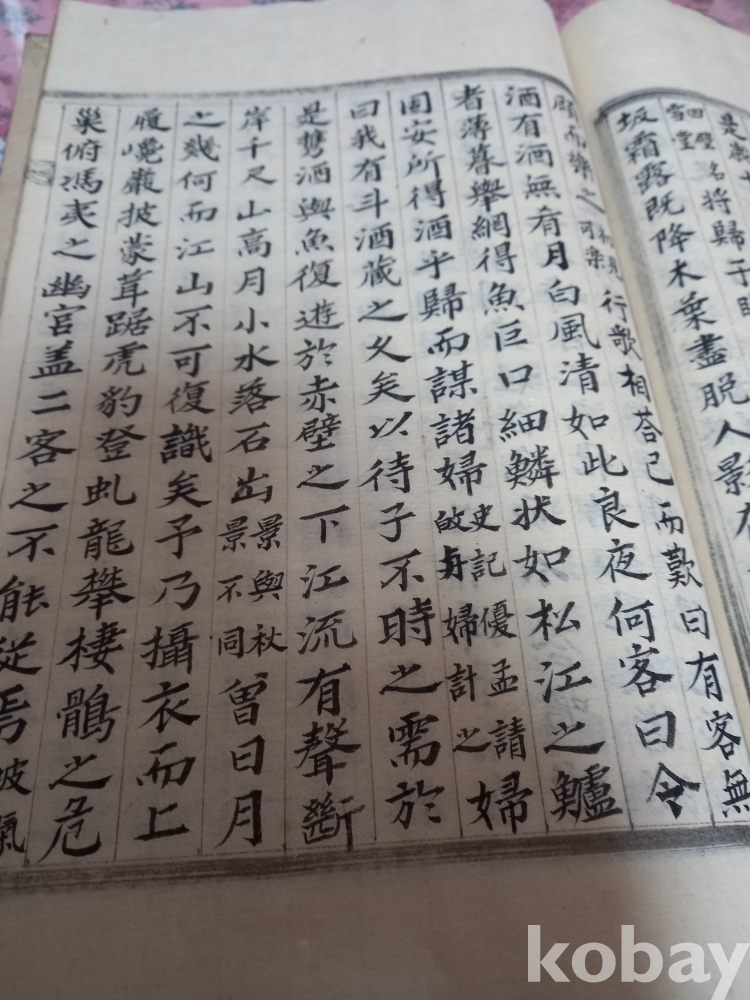 是歲十
四壁名
雪堂
將歸于臨
坂霜露既降木葉盡脫人景在
顧而樂之初見可樂行歌相荅已而歎曰有客無
酒有酒無肴月白風清如此良夜何客曰今
者薄暮舉網得魚巨口細鱗狀如松江之鱸
固安所得酒乎歸而謀諸婦史記優孟請婦計之婦
曰我有斗酒藏之久矣以待子不時之需於
是携酒與魚復遊於赤壁之下江流有聲斷
岸千尺山高月小水落石出景與秋景不同曾日月
之幾何而江山不可復識矣予乃攝衣而上
履巉巖披蒙茸踞虎豹登虬龍攀棲鶻之危
巢俯馮夷之幽宮盖二客之不能從焉坡氣
kobay